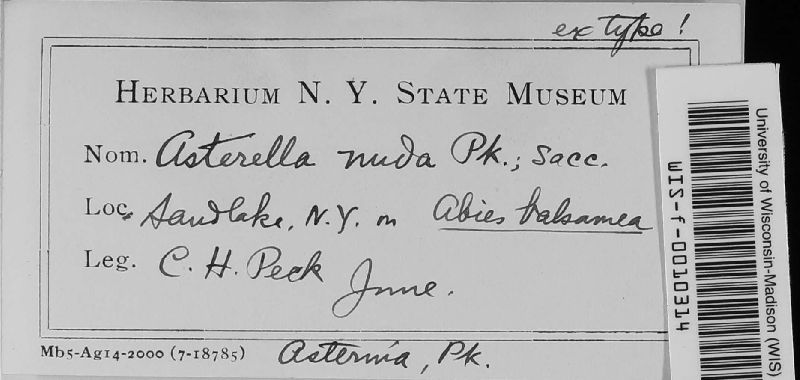 ex type!
HERBARIUM N. Y. STATE MUSEUM
Nom. Asterella nuda Pk.; Sacc.
Loc. Sandlake, N.Y. on Abies balsamea
Leg. C. H. Peck
June.
Mb5-Ag14-2000 (7-18785) Asterina, Pk.
WIS-f-0010314
University of Wisconsin-Madison (WIS)